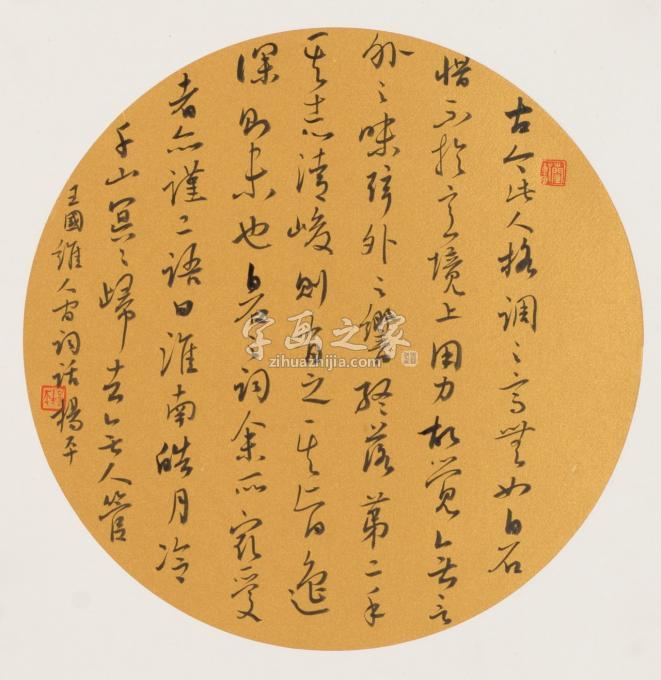 古今詞人格調之高無如白石
惜不於意境上用力故覺無言
外之味弦外之響終落第二手
其志清峻則有之其旨遙
深則未也白石詞余所最愛
者亦謹二語曰淮南皓月冷
千山冥々歸去無人管
王國維人间詞話楊平
字画之家
zihuazhijia.com